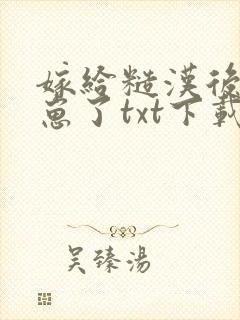 嫁給糙漢後
崽了txt下載
吴臻湯